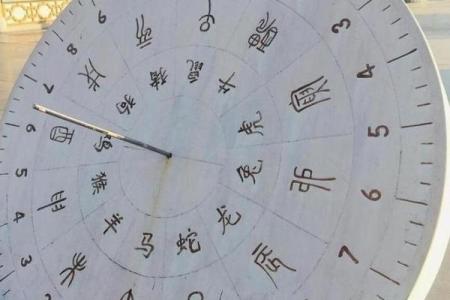 3
4
5
6
7
3
4
5
6
7
8
9
子
寅
卯
辰
未
申
酉
戌
亥
鼠
牛
虎
兔
龙
蛇
马
羊
猴
鸡
狗
猪